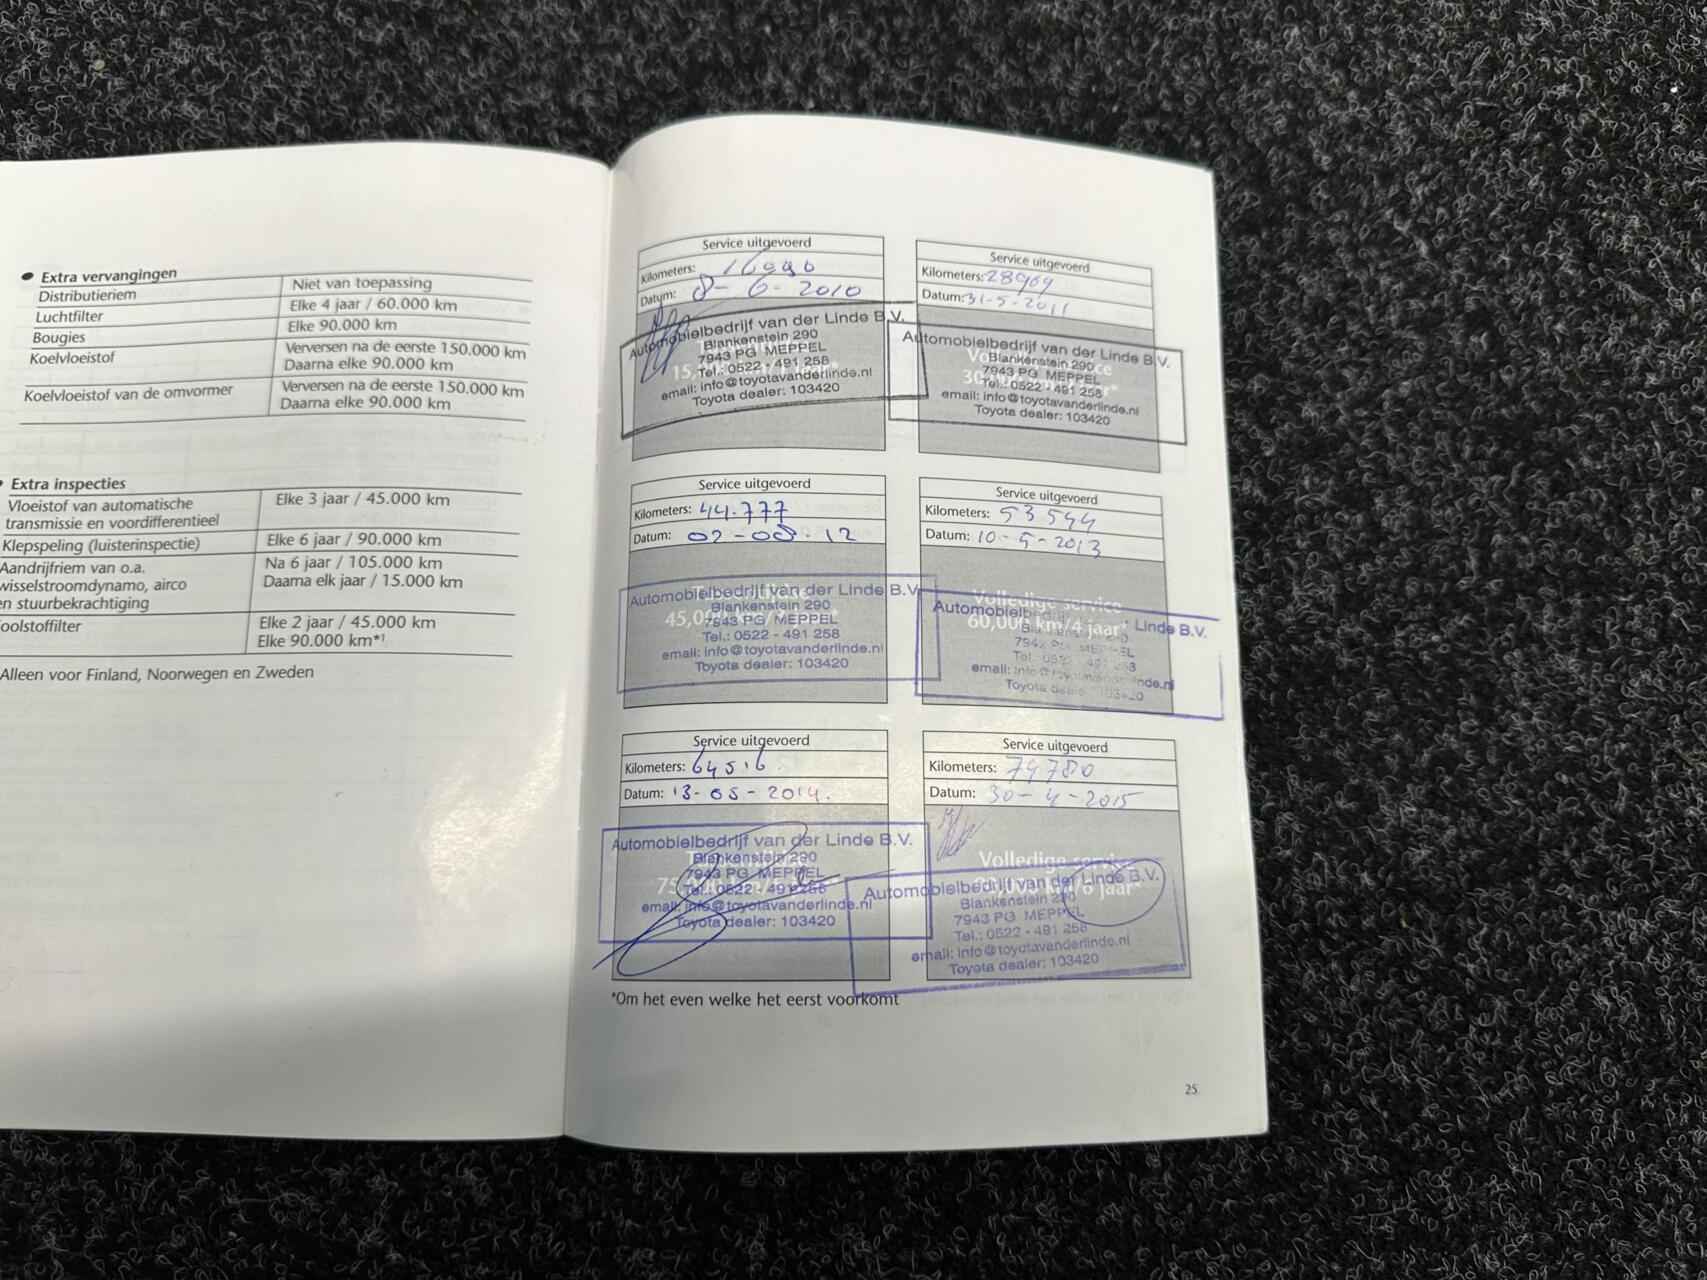 Extra vervangingen
Distributieriem Niet van toepassing
Luchtfilter Elke 4 jaar / 60.000 km
Bougies Elke 90.000 km
Koelvloeistof Verversen na de eerste 150.000 km
Daarna elke 90.000 km
Koelvloeistof van de omvormer Verversen na de eerste 150.000 km
Daarna elke 90.000 km
Extra inspecties
Vloeistof van automatische
transmissie en voordifferentieel Elke 3 jaar / 45.000 km
Klepspeling (luisterinspectie) Elke 6 jaar / 90.000 km
Aandrijfriem van o.a.
wisselstroomdynamo, airco
en stuurbekrachtiging
Na 6 jaar / 105.000 km
Daarna elk jaar / 15.000 km
oolstoffilter
Elke 2 jaar / 45.000 km
Elke 90.000 km*¹
Alleen voor Finland, Noorwegen en Zweden
Service uitgevoerd
Kilometers:
Datum: 8-6-2010
Automobielbedrijf van der Linde B.V.
Blankenstein 290
7943 PG MEPPEL
Tel.: 0522 - 491 258
email: info@toyotavanderlinde.nl
Toyota dealer: 103420
Service uitgevoerd
Kilometers: 28969
Datum: 31-5-2011
Automobielbedrijf van der Linde B.V.
Blankenstein 290
7943 PG MEPPEL
Tel.: 0522 - 491 258
email: info@toyotavanderlinde.nl
Toyota dealer: 103420
Service uitgevoerd
Kilometers: 44.777
Datum: 02-08-12
Automobielbedrijf van der Linde B.V.
Blankenstein 290
45,000
7943 PG MEPPEL
Tel.: 0522 - 491 258
email: info@toyotavanderlinde.nl
Toyota dealer: 103420
Service uitgevoerd
Kilometers: 53544
Datum: 10-5-2013
Volledige service
60,000 km/4 jaar*
Linde B.V.
MEPPEL
Toyota
Service uitgevoerd
Kilometers: 64516
Datum: 13-05-2014.
Automobielbedrijf van der Linde B.V.
Blankenstein 290
7943 PG MEPPEL
Tel.: 0522 - 491 258
email: info@toyotavanderlinde.nl
Toyota dealer: 103420
Service uitgevoerd
Kilometers: 74780
Datum: 30-4-2015
Volledige service
Automobielbedrijf van der Linde B.V.
Blankenstein 290
7943 PG MEPPEL
Tel.: 0522 - 491 258
email: info@toyotavanderlinde.nl
Toyota dealer: 103420
*Om het even welke het eerst voorkomt
25